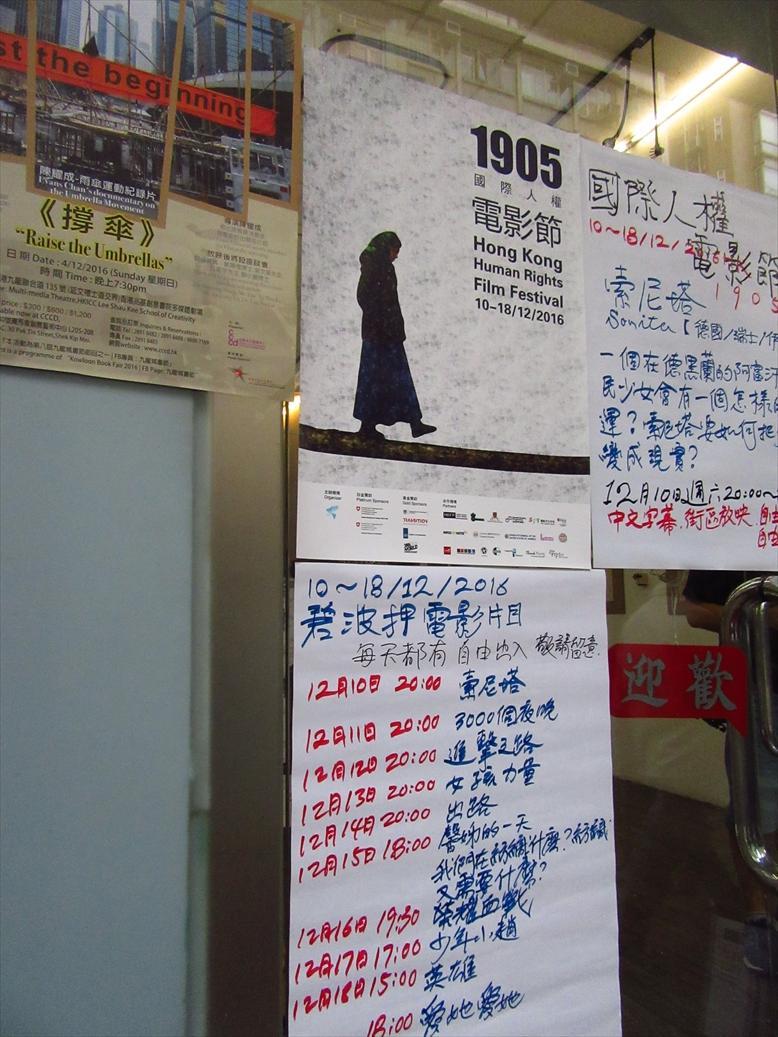 st the beginning
陳耀成-雨傘運動紀錄片
Evans Chan's documentary on
the Umbrella Movement
《撐傘》
"Raise the Umbrellas"
日期 Date: 4/12/2016 (Sunday 星期日)
時間 Time: 晚上7:30pm
Multi-media Theatre, HKICC Lee Shau Kee School of Creativity
1905
國際人權
電影節
Hong Kong
Human Rights
Film Festival
10~18/12/2016
國際人權
10~18/12/2016
電影節
1905
索尼塔
Sonita【德國/瑞士/伊
一個在德黑蘭的阿富汗
民少女會有一個怎樣的
運?索尼塔要如何把
變成現實?
12月10日週六20:00~
中文字幕.街區放映.自由
自由
10~18/12/2016
碧波押電影片目
每天都有 自由出入 敬請留意.
12月10日 20:00 索尼塔
12月11日 20:00 3000個夜晚
12月12日 20:00 進擊之路
12月13日 20:00 女孩力量
12月14日 20:00 出路
12月15日 18:00 馨姊的一天
我們在紡織什麼?
又需要什麼?
12月16日 19:30 榮耀血戰
12月17日 17:00 少年小趙
12月18日 15:00 英雄
18:00 愛她愛她
歡迎